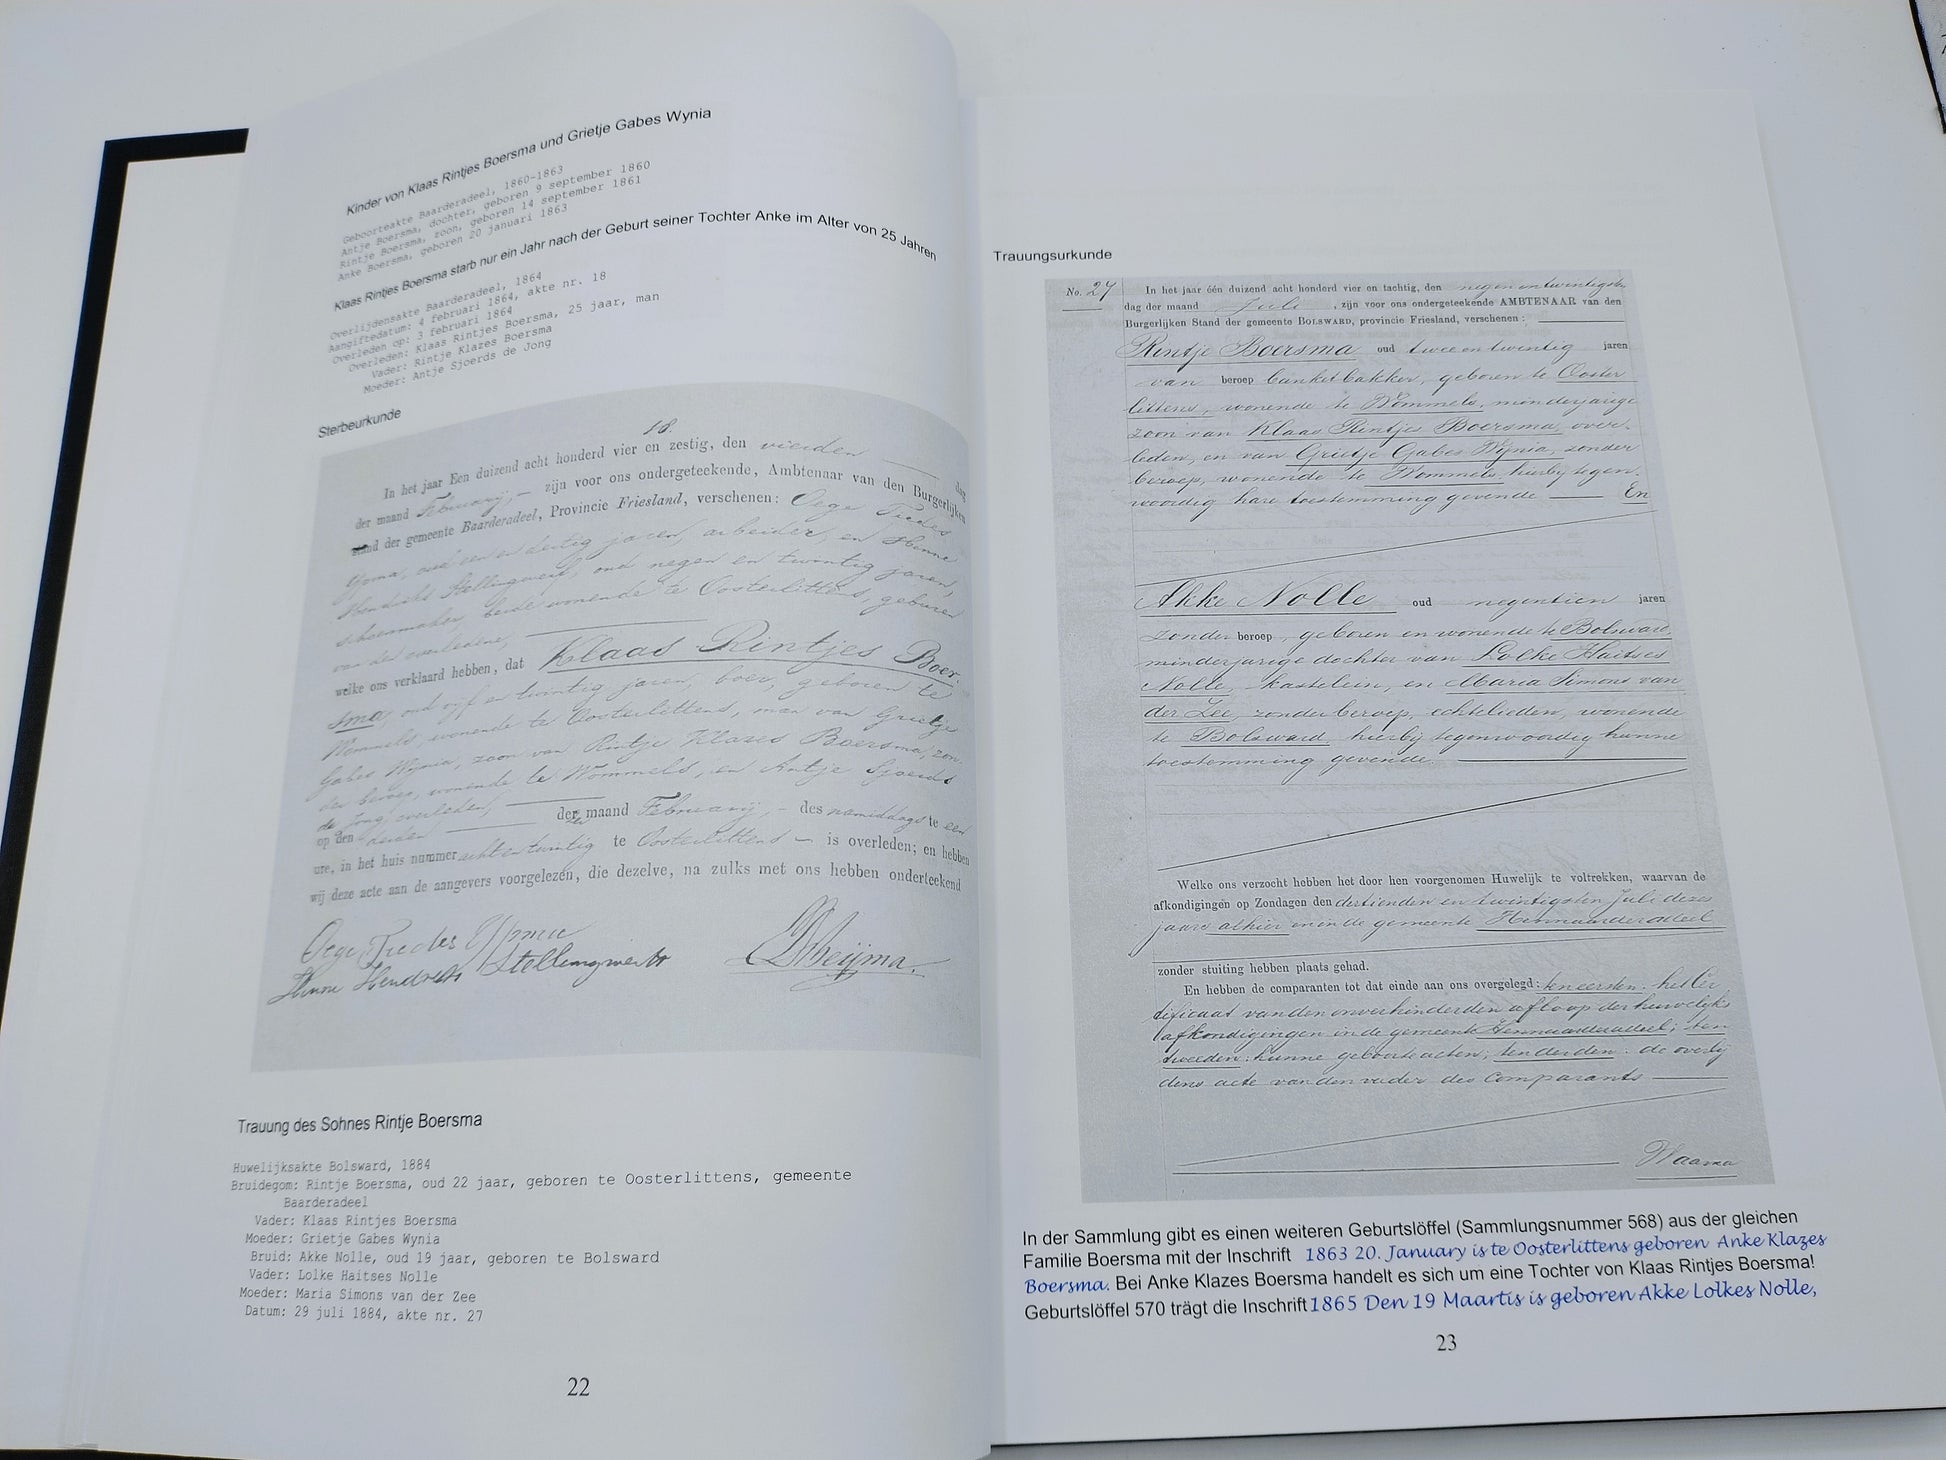 Kinder von Klaas Rintjes Boersma und Grietje Gabes Wynia
Geboorteakte Baarderadeel, 1860-1863
Antje Boersma, dochter, geboren 9 september 1860
Rintje Boersma, zoon, geboren 14 september 1861
Anke Boersma, geboren 20 januari 1863
Klaas Rintjes Boersma starb nur ein Jahr nach der Geburt seiner Tochter Anke im Alter von 25 Jahren
Overlijdensakte Baarderadeel, 1864
Aangiftedatum: 4 februari 1864, akte nr. 18
Overleden op: 3 februari 1864
Overleden: Klaas Rintjes Boersma, 25 jaar, man
Vader: Rintje Klazes Boersma
Moeder: Antje Sjoerds de Jong
Sterbeurkunde
18.
In het jaar Een duizend acht honderd vier en zestig, den vierden dag
der maand Februarij, zijn voor ons ondergeteekende, Ambtenaar van den Burgerlijken
stand der gemeente Baarderadeel, Provincie Friesland, verschenen: Oege Tjedes
Ypma, oud een en dertig jaren, arbeider, en Hinne
Hendriks Stellingwerf, oud negen en twintig jaren,
schoenmaker, beide wonende te Oosterlittens, geburen
van den overledene,
welke ons verklaard hebben, dat Klaas Rintjes Boer-
sma, oud vijf en twintig jaren, boer, geboren te
Wommels, wonende te Oosterlittens, man van Grietje
Gabes Wynia, zoon van Rintje Klazes Boersma, zon-
der beroep, wonende te Wommels, en Antje Sjoerds
de Jong, overleden,
op den derden der maand Februarij, des namiddags te een
ure, in het huis nummer acht en twintig te Oosterlittens is overleden; en hebben
wij deze acte aan de aangevers voorgelezen, die dezelve, na zulks met ons hebben onderteekend
Hinne Hendriks Stellingwerf
Trauung des Sohnes Rintje Boersma
Huwelijksakte Bolsward, 1884
Bruidegom: Rintje Boersma, oud 22 jaar, geboren te Oosterlittens, gemeente
Baarderadeel
Vader: Klaas Rintjes Boersma
Moeder: Grietje Gabes Wynia
Bruid: Akke Nolle, oud 19 jaar, geboren te Bolsward
Vader: Lolke Haitses Nolle
Moeder: Maria Simons van der Zee
Datum: 29 juli 1884, akte nr. 27
22
Trauungsurkunde
No. 27 In het jaar één duizend acht honderd vier en tachtig, den negen en twintigsten
dag der maand Juli, zijn voor ons ondergeteekende AMBTENAAR van den
Burgerlijken Stand der gemeente BOLSWARD, provincie Friesland, verschenen:
Rintje Boersma oud twee en twintig jaren
van beroep banketbakker, geboren te Ooster
littens, wonende te Wommels, minderjarige
zoon van Klaas Rintjes Boersma, over-
leden, en van Grietje Gabes Wynia, zonder
beroep, wonende te Wommels, hierbij tegen-
woordig hare toestemming gevende En
Akke Nolle oud negentien jaren
zonder beroep, geboren en wonende te Bolsward,
minderjarige dochter van Lolke Haitses
Nolle, kastelein, en Maria Simons van
der Zee, zonder beroep, echtelieden, wonende
te Bolsward, hierbij tegenwoordig hunne
toestemming gevende.
Welke ons verzocht hebben het door hen voorgenomen Huwelijk te voltrekken, waarvan de
afkondigingen op Zondagen den dertienden en twintigsten Juli dezes
jaars alhier en in de gemeente Hennaarderadeel
zonder stuiting hebben plaats gehad.
En hebben de comparanten tot dat einde aan ons overgelegd: ten eersten: het Cer
tificaat van den onverhinderden afloop der huwelijks
afkondigingen in de gemeente Hennaarderadeel; ten
tweeden: hunne geboorteacten; ten derden: de overlij
dens acte van den vader des Comparants
Haama
In der Sammlung gibt es einen weiteren Geburtslöffel (Sammlungsnummer 568) aus der gleichen
Familie Boersma mit der Inschrift 1863 20. January is te Oosterlittens geboren Anke Klazes
Boersma. Bei Anke Klazes Boersma handelt es sich um eine Tochter von Klaas Rintjes Boersma!
Geburtslöffel 570 trägt die Inschrift 1865 Den 19 Maartis is geboren Akke Lolkes Nolle,
23